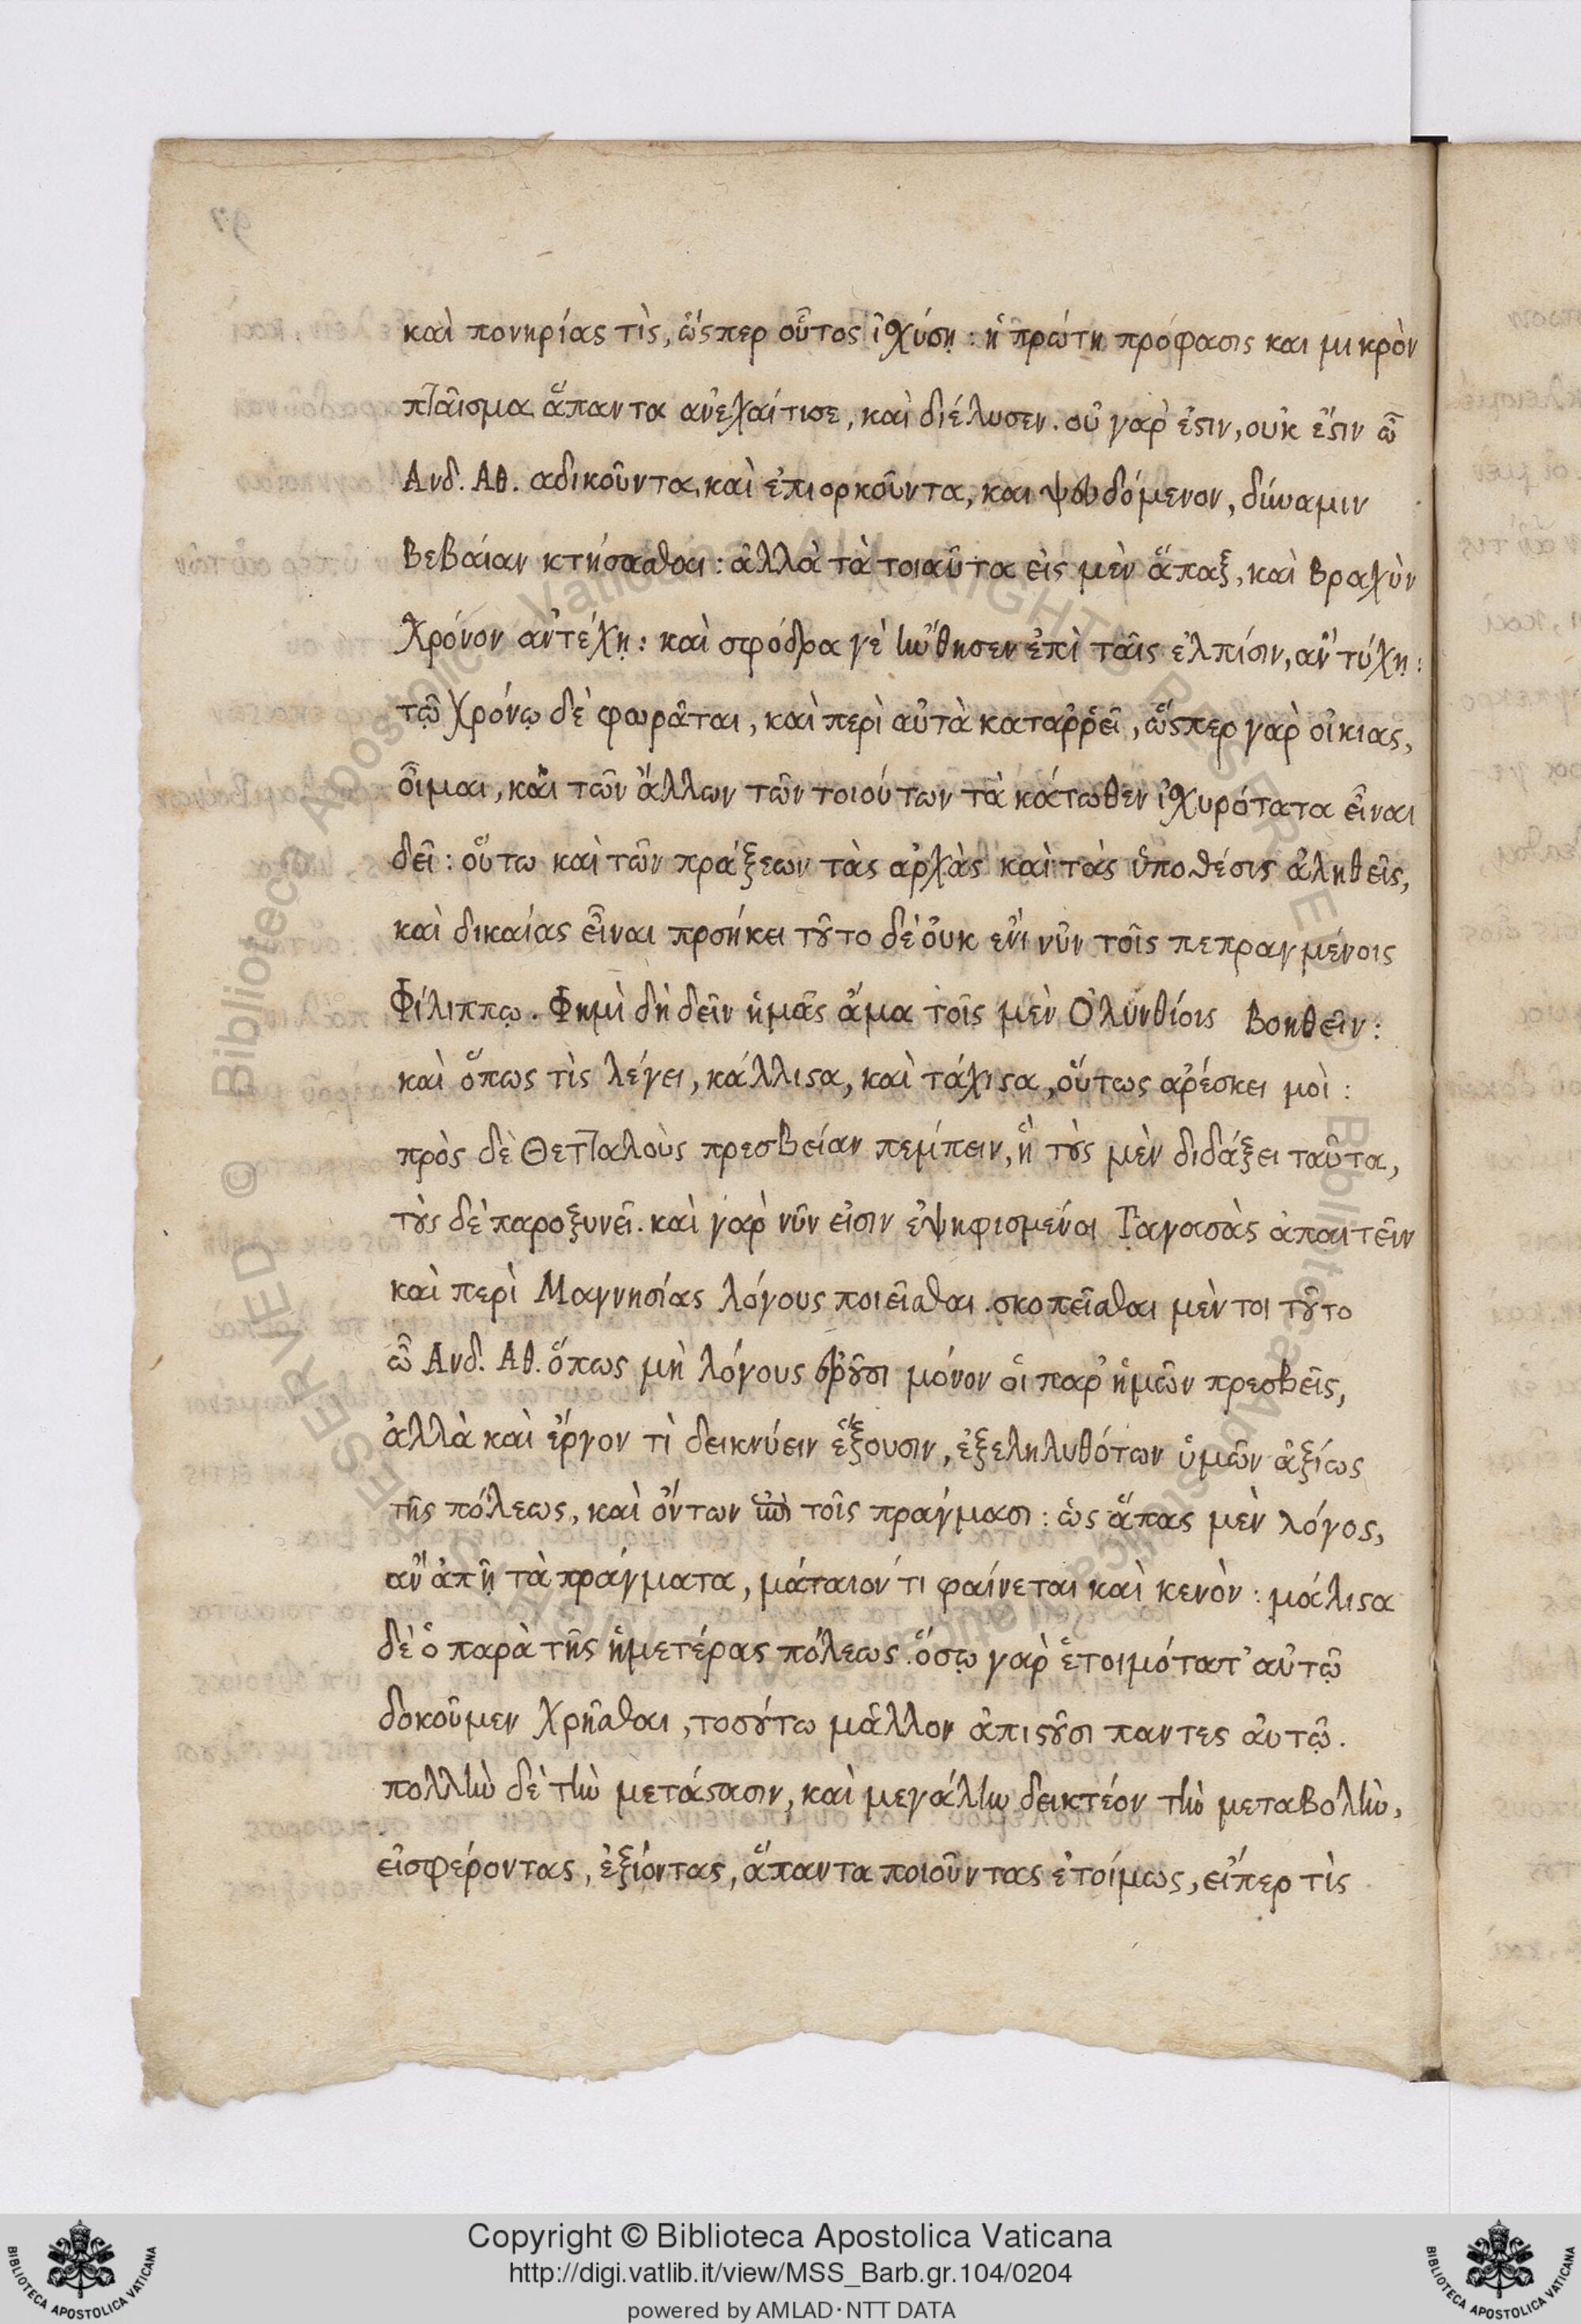 καὶ πονηρίας τὶς, ὥςπερ οὗτος ἰσχύσῃ : ἡ πρώτη πρόφασις και μικρὸν
πταῖσμα ἅπαντα ἀνεχαίτισε, καὶ διέλυσεν. οὐ γὰρ ἐστιν, ουκ ἔστιν ὦ
Ανδ. Αθ. αδικοῦντα, καὶ ἐπιορκοῦντα, και ψευδόμενον, δύναμιν
βεβαίαν κτήσασθαι : ἀλλὰ τὰ τοιαῦτα εἰς μὲν ἅπαξ, καὶ βραχὺν
χρόνον ἀντέχῃ : καὶ σφόδρα γὲ ἤνθησεν ἐπὶ ταῖς ἐλπίσιν, ἂν τύχῃ :
τῷ χρόνῳ δὲ φωρᾶται, καὶ περὶ αὐτὰ καταῤῥεῖ, ὥςπερ γὰρ οἰκιας,
οἶμαι, καὶ τῶν ἄλλων τῶν τοιούτων τὰ κάτωθεν ἰσχυρότατα εἶναι
δεῖ : οὕτω καὶ τῶν πράξεων τὰς ἀρχὰς καὶ τὰς ὑποθέσις ἀληθεῖς,
καὶ δικαίας εἶναι προσήκει τοῦτο δὲ οὐκ ἐνὶ νῦν τοῖς πεπραγμένοις
Φίλιππῳ. Φημὶ δὴ δεῖν ἡμᾶς ἅμα τοῖς μὲν Ὀλυνθίοις βοηθεῖν :
καὶ ὅπως τὶς λέγει, κάλλιστα, καὶ τάχιστα, οὕτως ἀρέσκει μοὶ :
πρὸς δὲ Θετταλοὺς πρεσβείαν πεμίπειν, ἣ τοὺς μὲν διδάξει ταῦτα,
τοὺς δὲ παροξυνεῖ. καὶ γὰρ νῦν εἰσιν ἐψηφισμένοι Παγασὰς ἀπαιτεῖν
καὶ περὶ Μαγνησίας λόγους ποιεῖσθαι. σκοπεῖσθαι μὲν τοι τοῦτο
ὦ Ανδ. Αθ. ὅπως μὴ λόγους ἐροῦσι μόνον οἱ παρ ἡμῶν πρεσβεῖς,
ἀλλὰ καὶ ἔργον τὶ δεικνύειν ἕξουσιν, ἐξεληλυθότων ὑμῶν ἀξίως
τῆς πόλεως, καὶ ὄντων ἐπὶ τοῖς πράγμασι : ὡς ἅπας μὲν λόγος,
ἂν ἀπῇ τὰ πράγματα, μάταιόν τι φαίνεται καὶ κενὸν : μάλιστα
δὲ ὁ παρὰ τῆς ἡμετέρας πόλεως. ὅσῳ γὰρ ἑτοιμότατ' αὐτῷ
δοκοῦμεν χρῆσθαι, τοσούτω μᾶλλον ἀπιστοῦσι παντες ἀυτῷ.
πολλὴν δὲ τὴν μετάστασιν, καὶ μεγάλην δεικτέον τὴν μεταβολὴν,
εἰσφέροντας, ἐξιόντας, ἅπαντα ποιοῦντας ἑτοίμως, εἴπερ τὶς
Copyright © Biblioteca Apostolica Vaticana
http://digi.vatlib.it/view/MSS_Barb.gr.104/0204
powered by AMLAD·NTT DATA